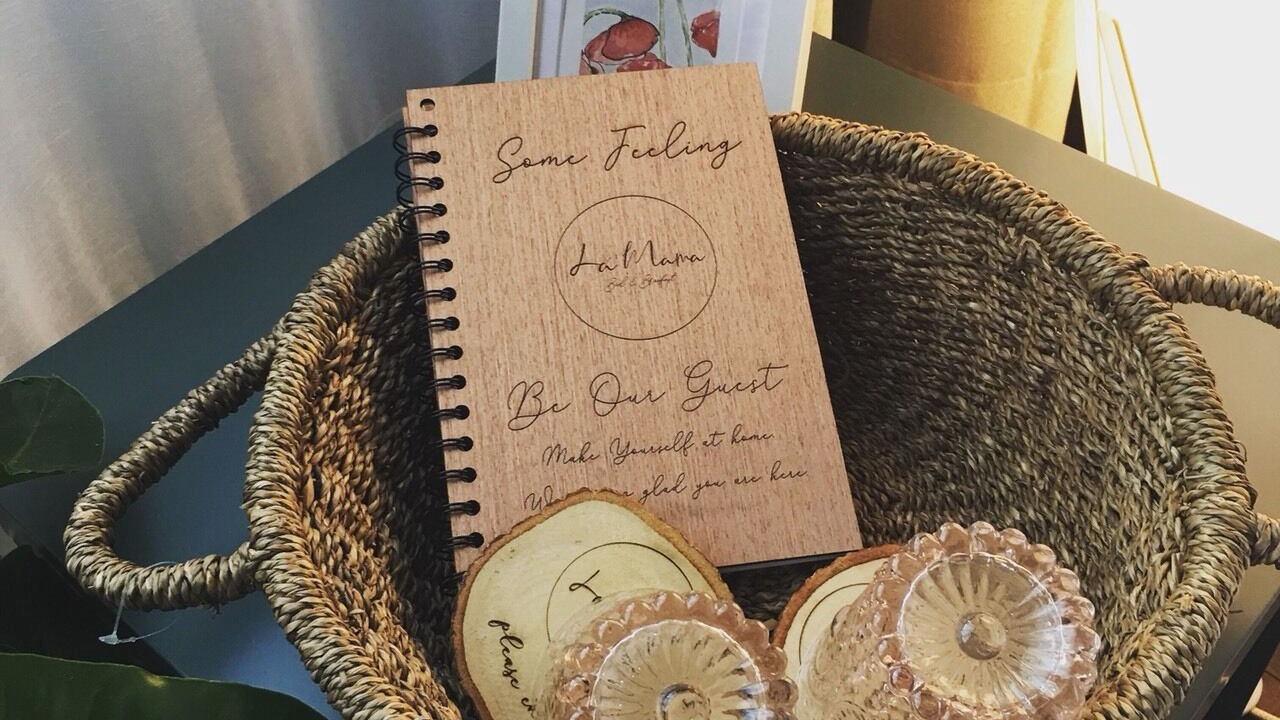 Some Feeling
La Mama
Bed & Breakfast
Be Our Guest
Make Yourself at home.
glad you are here.
please